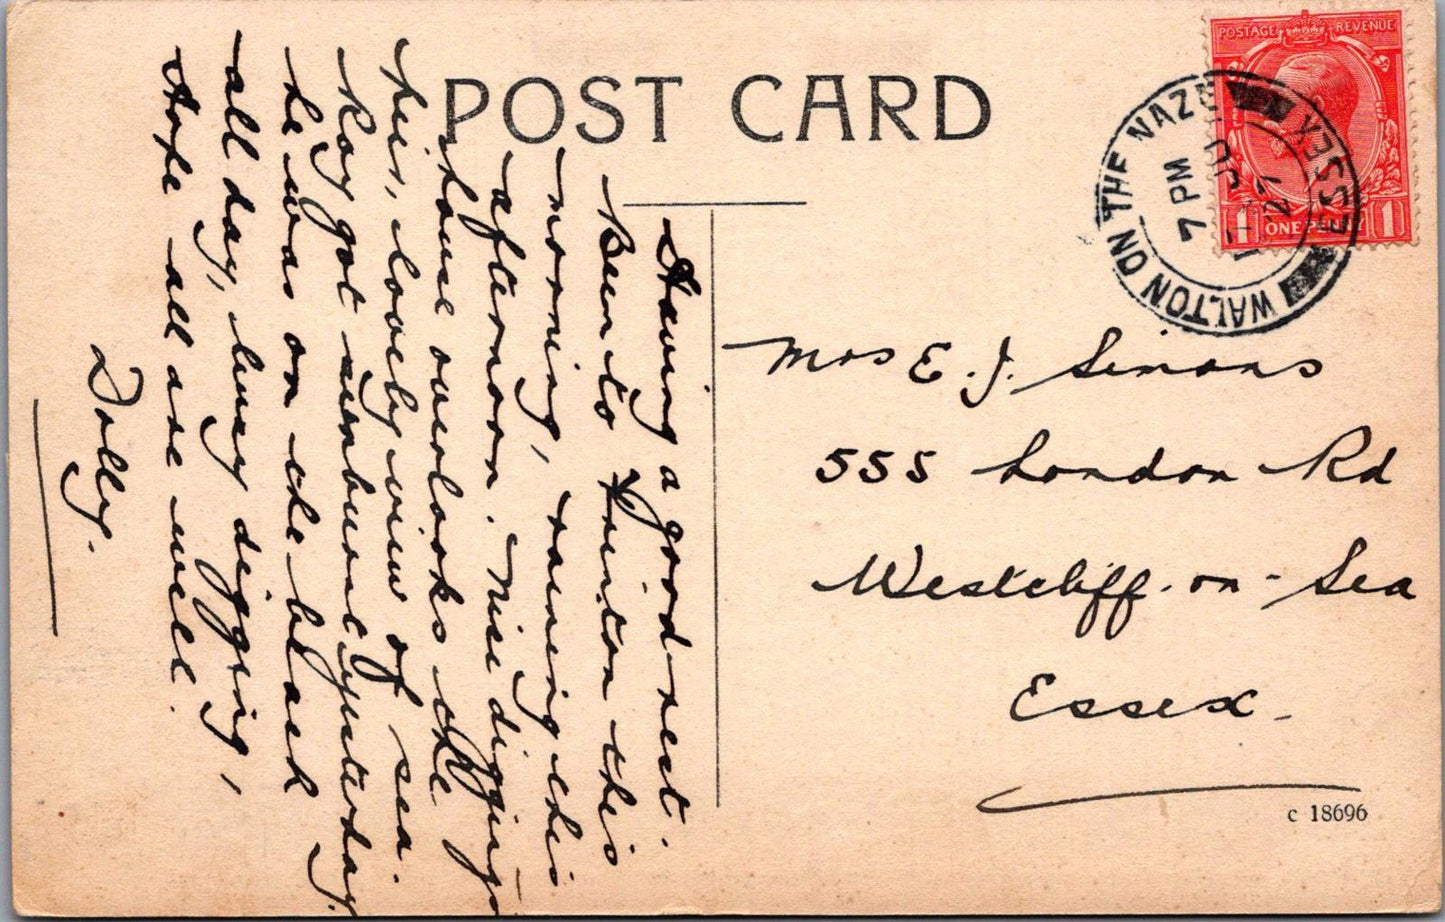 POST CARD
POSTAGE REVENUE
1 ONE PENNY 1
WALTON ON THE NAZE ESSEX
7 PM
27
Having a good rest.
Been to Frinton this
morning, raining this
afternoon. Nice diggings
house overlooks the
pier, lovely view of sea.
Ray got sunburnt yesterday.
he was on the beach
all day, busy digging,
Hope all are well.
Dolly.
Mrs E. J. Simons
555 London Rd
Westcliff-on-Sea
Essex.
c 18696